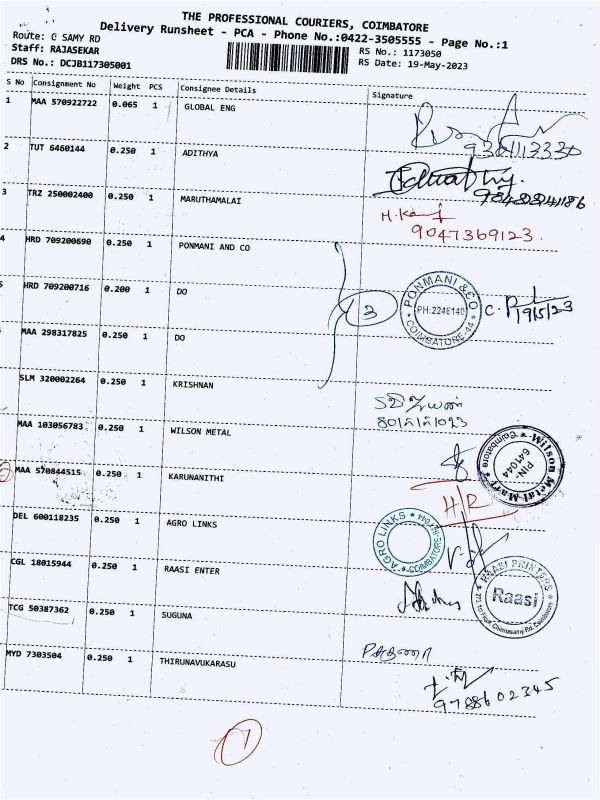 THE PROFESSIONAL COURIERS, COIMBATORE
Delivery Runsheet - PCA - Phone No.:0422-3505555 - Page No.:1
Route: G SAMY RD
Staff: RAJASEKAR
DRS No.: DCJB117305001
RS No.: 1173050
RS Date: 19-May-2023
S No Consignment No Weight PCS Consignee Details Signature
1 MAA 570922722 0.065 1 GLOBAL ENG
2 TUT 6460144 0.250 1 ADITHYA
3 TRZ 250002400 0.250 1 MARUTHAMALAI
H.
9047369123.
4 HRD 709200690 0.250 1 PONMANI AND CO
HRD 709200716 0.200 1 DO
3
PONMANI & CO
PH:2246140
COIMBATORE-44
19/5/23
MAA 298317825 0.250 1 DO
SLM 320002264 0.250 1 KRISHNAN
MAA 103056783 0.250 1 WILSON METAL
Wilson Metal Mart
PIN-
641044
Coimbatore
MAA 570844515 0.250 1 KARUNANITHI
H/R
DEL 600118235 0.250 1 AGRO LINKS
AGRO LINKS
COIMBATORE-
CGL 18015944 0.250 1 RAASI ENTER
RAASI PRINTERS
Raasi
TCG 50387362 0.250 1 SUGUNA
MYD 7303504 0.250 1 THIRUNAVUKARASU
9788602345